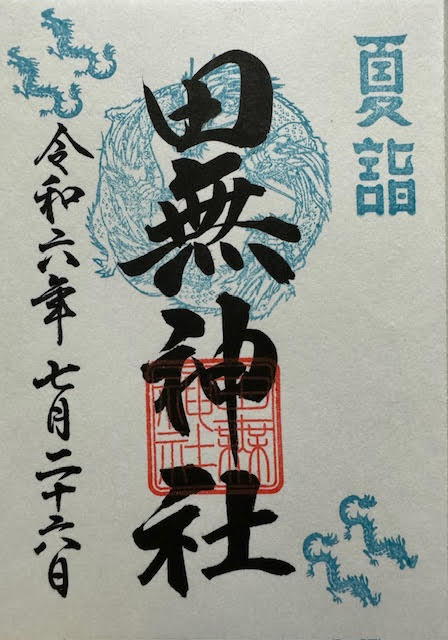 夏詣
田無神社
田無神社
令和六年 七月二十六日